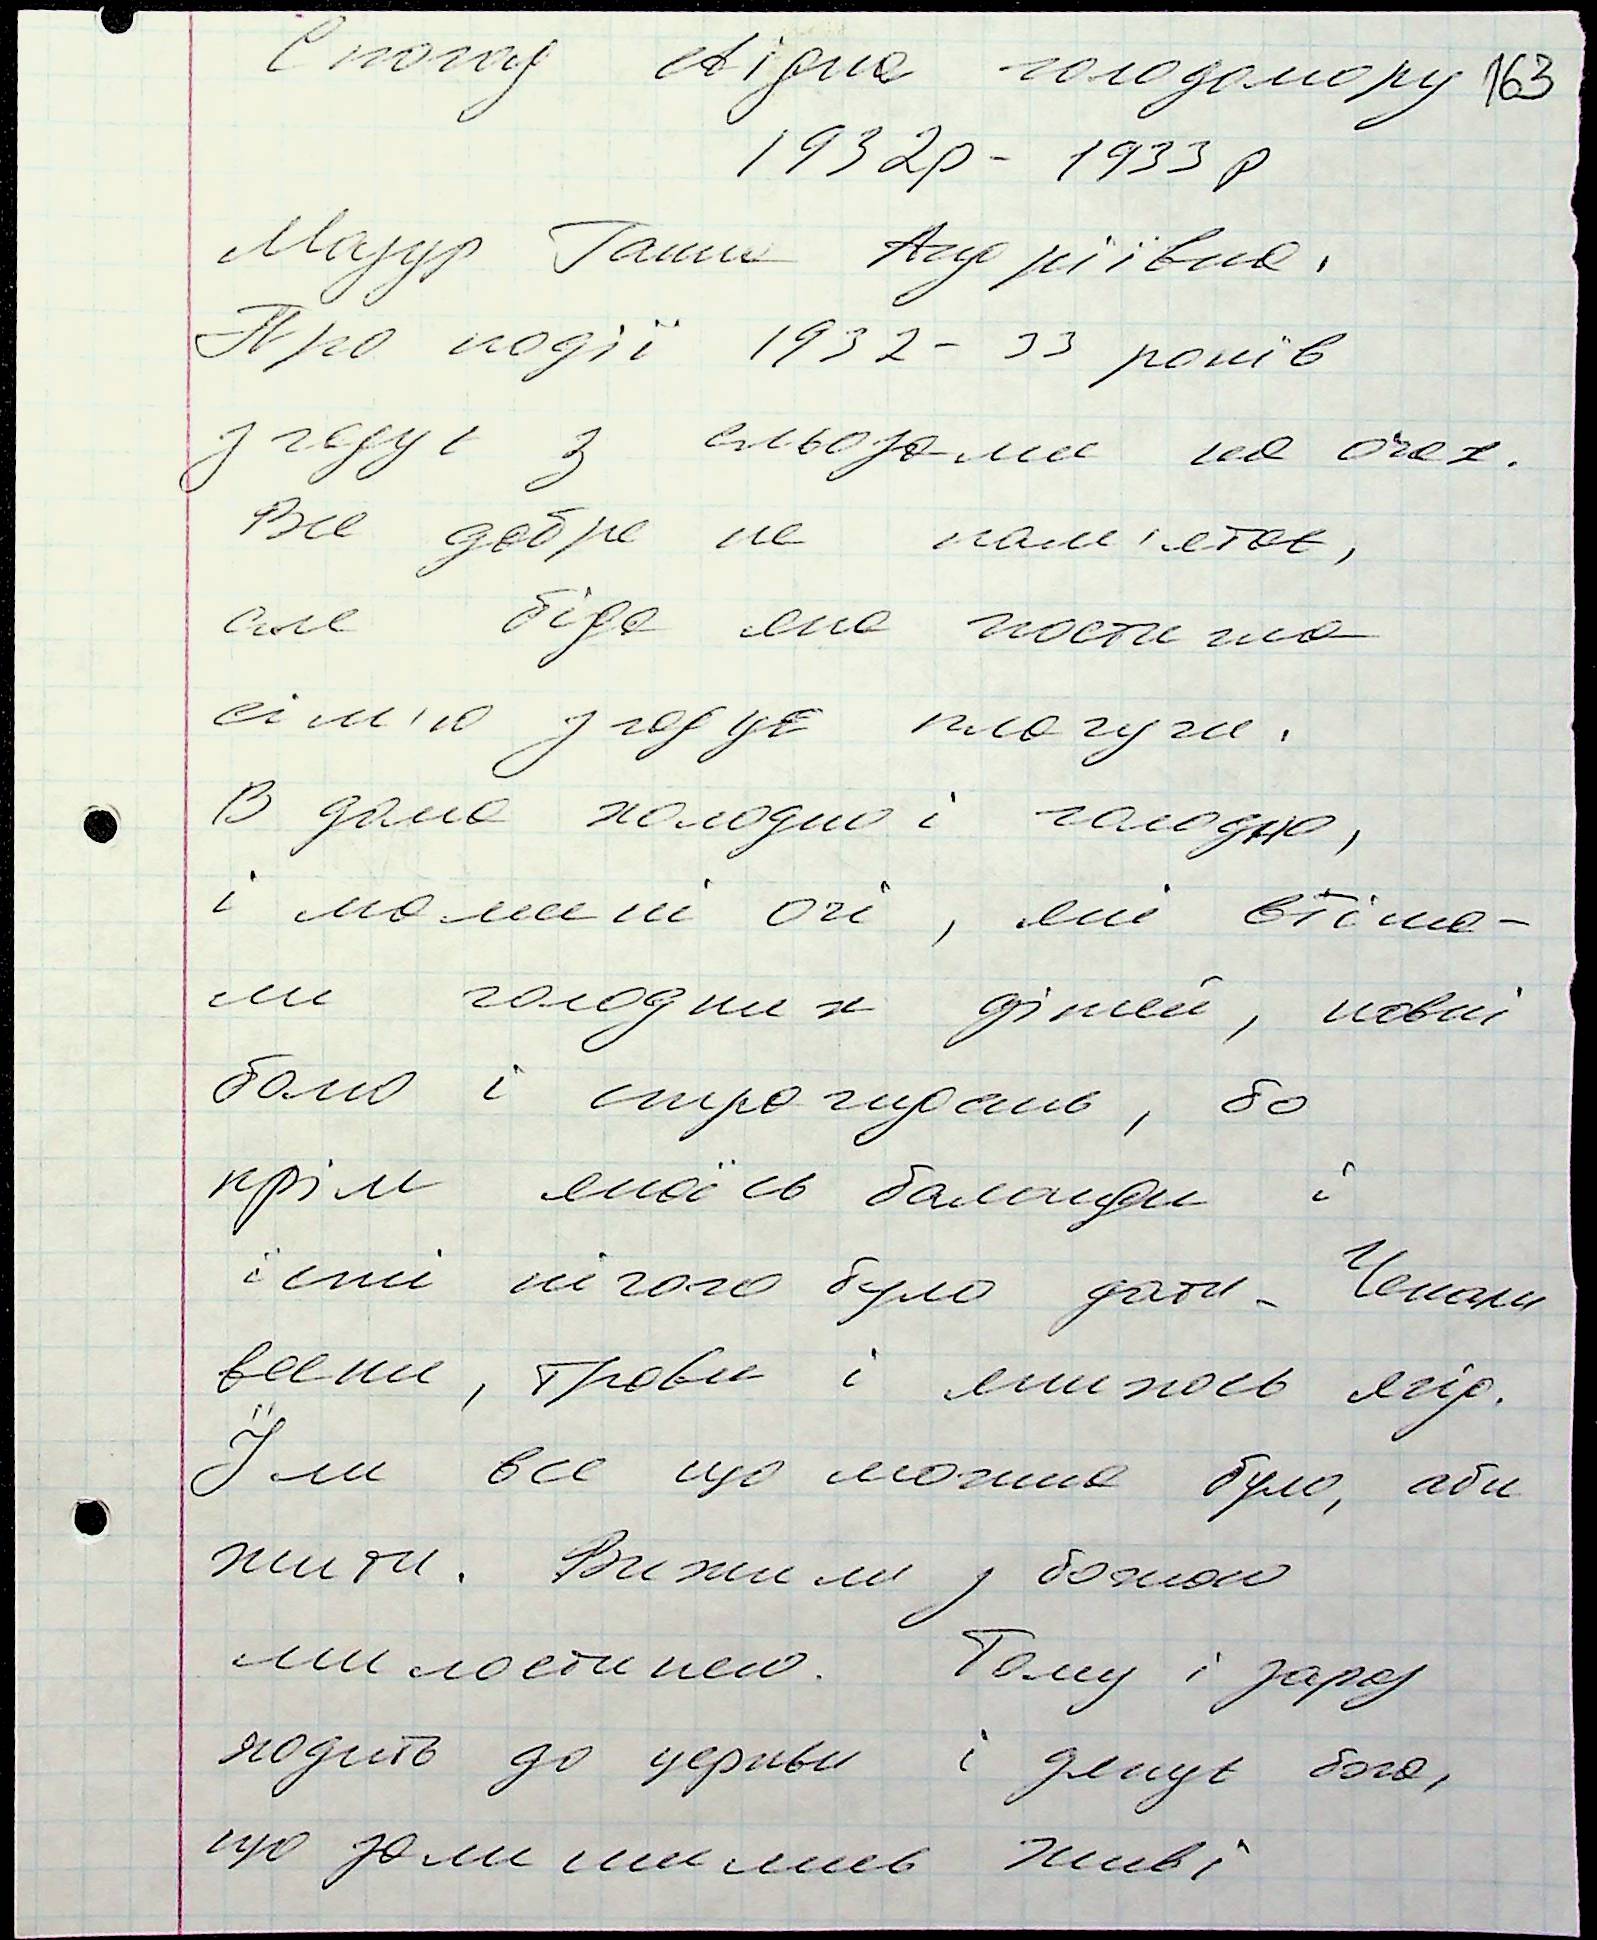 Спогад свідка голодомору 163
1932р - 1933р
Мазур Ганна Андріївна.
Про події 1932-33 років
згадує з сльозами на очах.
Все добре не пам'ятає,
але біда яка постигла
сім'ю згадує плачучи.
В дома холодно і голодно,
і мамині очі, які втіша-
ли голодних дітей, повні
болю і страждань, бо
крім якоїсь баланди і
їсти нічого було дати. Чекали
весни, трави і якихось ягід.
Їли все що можна було, аби
жити. Вижили з божою
милостинею. Тому і зараз
ходить до церкви і дякує бога,
що залишились живі